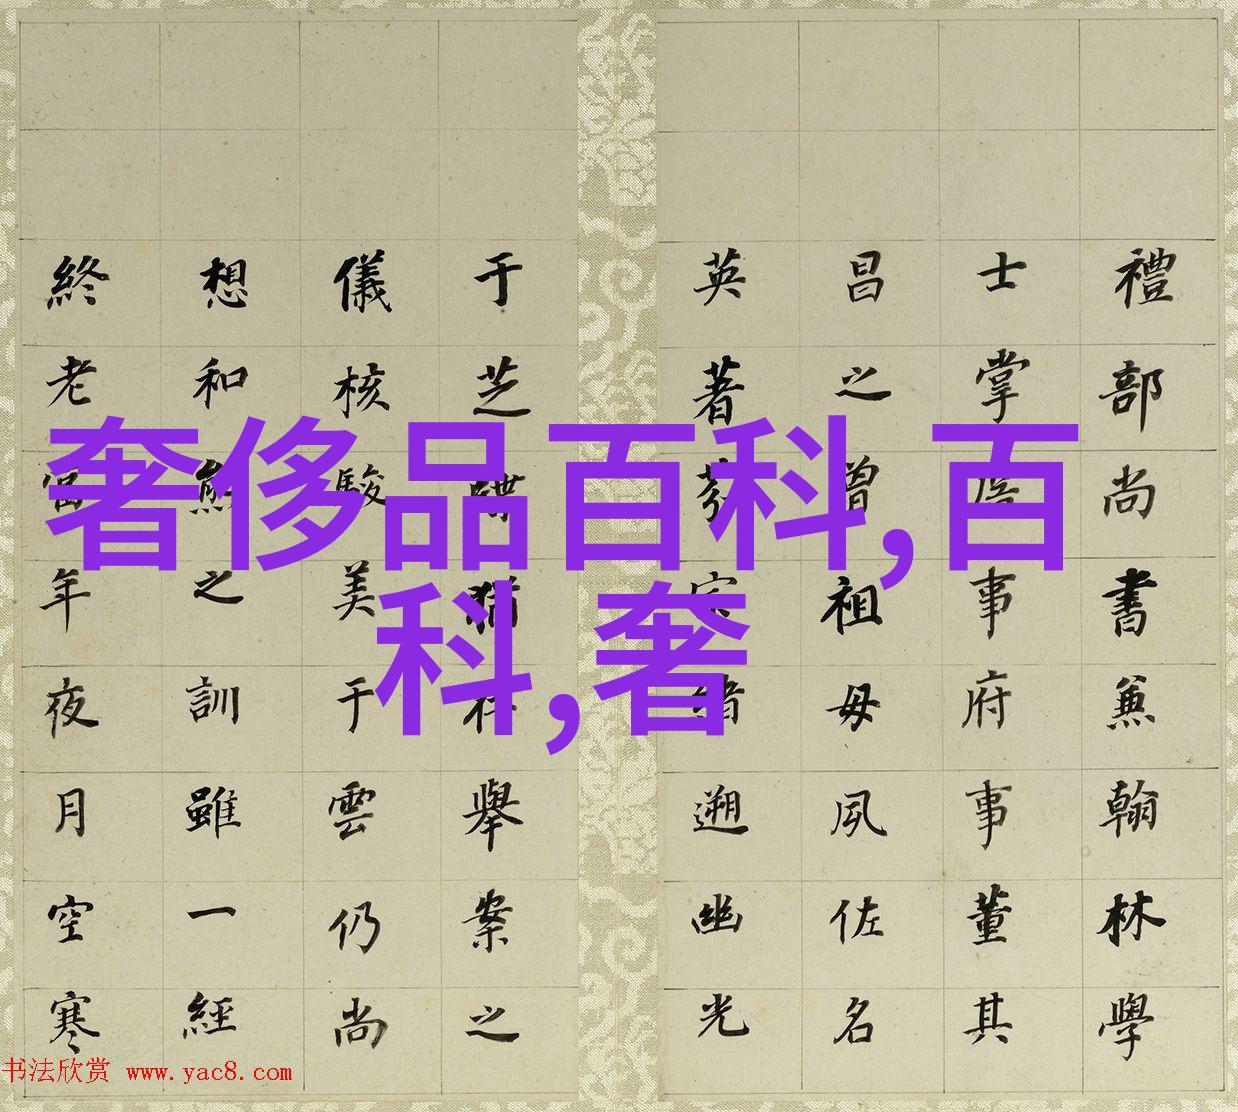 奢侈品百科,百
科,奢
禮部尚書兼翰林學
士掌詹事府事董其
昌之曾祖母夙佐名
英著遡幽光
于芝舉案之
儀核駿美于雲仍尚
想和熊之訓雖一經
終老當年夜月空寒
书法欣赏 www.yac8.com